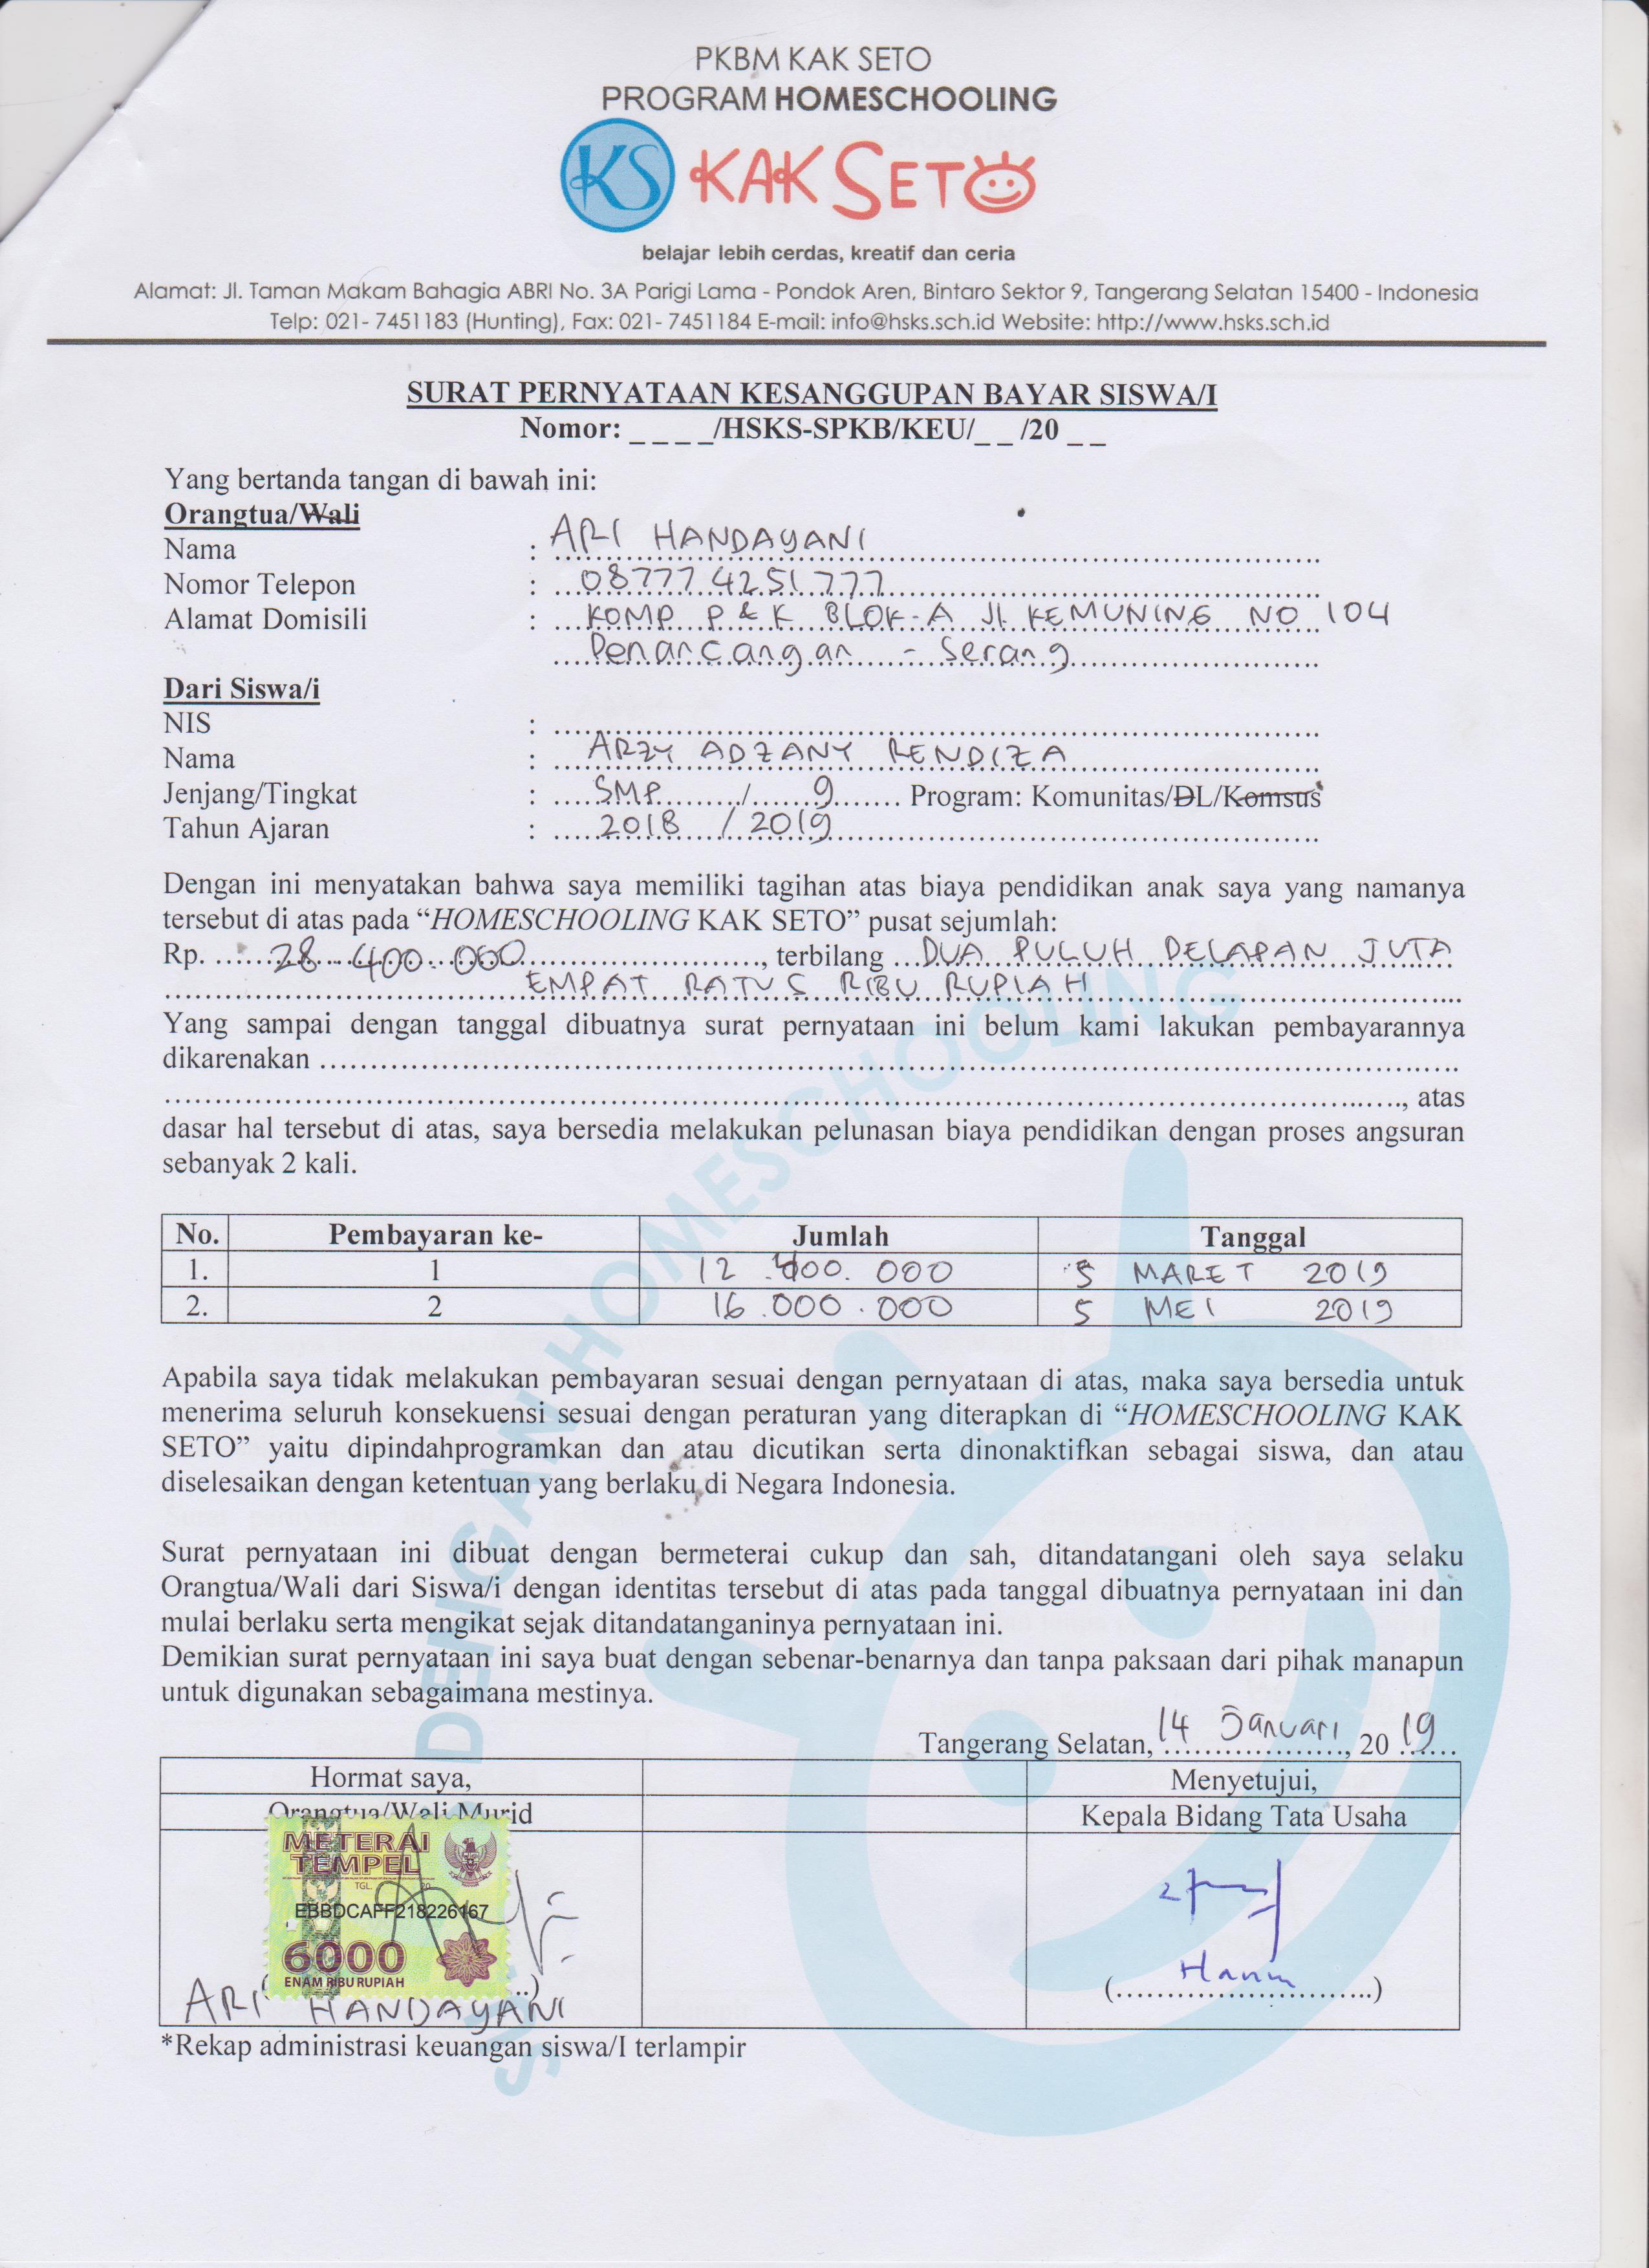 PKBM KAK SETO
PROGRAM HOMESCHOOLING
KS KAK SETO
belajar lebih cerdas, kreatif dan ceria
Alamat: Jl. Taman Makam Bahagia ABRI No. 3A Parigi Lama - Pondok Aren, Bintaro Sektor 9, Tangerang Selatan 15400 - Indonesia
Telp: 021- 7451183 (Hunting), Fax: 021- 7451184 E-mail: info@hsks.sch.id Website: http://www.hsks.sch.id
SURAT PERNYATAAN KESANGGUPAN BAYAR SISWA/I
Nomor: _ _ _ _/HSKS-SPKB/KEU/_ _ /20 _ _
Yang bertanda tangan di bawah ini:
Orangtua/Wali
Nama : ARI HANDAYANI
Nomor Telepon : 087774251777
Alamat Domisili : KOMP P & K BLOK-A Jl. KEMUNING NO 104
Penancangan - Serang
Dari Siswa/i
NIS :
Nama : ARZY ADZANY RENDIZA
Jenjang/Tingkat : SMP / 9 Program: Komunitas/DL/Komsus
Tahun Ajaran : 2018 / 2019
Dengan ini menyatakan bahwa saya memiliki tagihan atas biaya pendidikan anak saya yang namanya
tersebut di atas pada “HOMESCHOOLING KAK SETO” pusat sejumlah:
Rp. 28.400.000, terbilang DUA PULUH DELAPAN JUTA
EMPAT RATUS RIBU RUPIAH
Yang sampai dengan tanggal dibuatnya surat pernyataan ini belum kami lakukan pembayarannya
dikarenakan
, atas
dasar hal tersebut di atas, saya bersedia melakukan pelunasan biaya pendidikan dengan proses angsuran
sebanyak 2 kali.
No. Pembayaran ke- Jumlah Tanggal
1. 1 12.400.000 5 MARET 2019
2. 2 16.000.000 5 MEI 2019
Apabila saya tidak melakukan pembayaran sesuai dengan pernyataan di atas, maka saya bersedia untuk
menerima seluruh konsekuensi sesuai dengan peraturan yang diterapkan di “HOMESCHOOLING KAK
SETO” yaitu dipindahprogramkan dan atau dicutikan serta dinonaktifkan sebagai siswa, dan atau
diselesaikan dengan ketentuan yang berlaku di Negara Indonesia.
Surat pernyataan ini dibuat dengan bermeterai cukup dan sah, ditandatangani oleh saya selaku
Orangtua/Wali dari Siswa/i dengan identitas tersebut di atas pada tanggal dibuatnya pernyataan ini dan
mulai berlaku serta mengikat sejak ditandatanganinya pernyataan ini.
Demikian surat pernyataan ini saya buat dengan sebenar-benarnya dan tanpa paksaan dari pihak manapun
untuk digunakan sebagaimana mestinya.
Tangerang Selatan, 14 Januari, 20 19
Hormat saya, Menyetujui,
Orangtua/Wali Murid Kepala Bidang Tata Usaha
METERAI
TEMPEL
TGL. 20
EBBDCAFF218226167
6000
ENAM RIBU RUPIAH
ARI HANDAYANI
*Rekap administrasi keuangan siswa/I terlampir
DENGAN HOMESCHOOLING